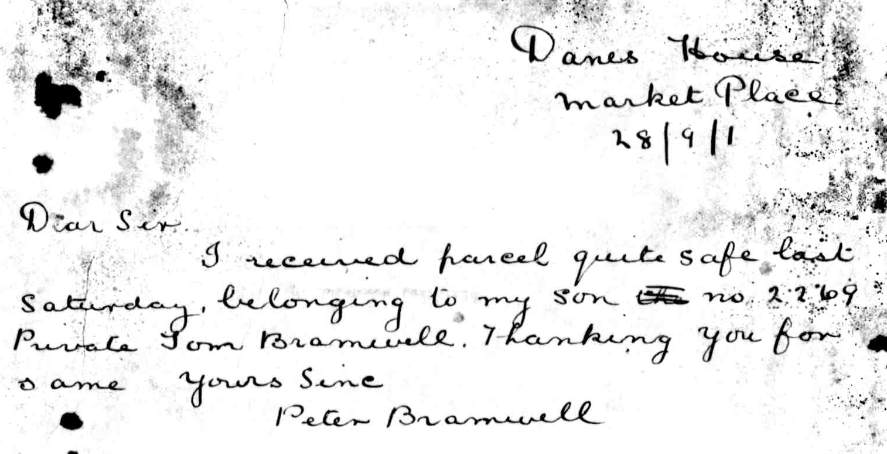 Danes House
Market Place
28/9/1
Dear Sir
I received parcel quite safe last
Saturday, belonging to my son no. 2269
Private Tom Bramwell. Thanking you for
same yours Sinc
Peter Bramwell